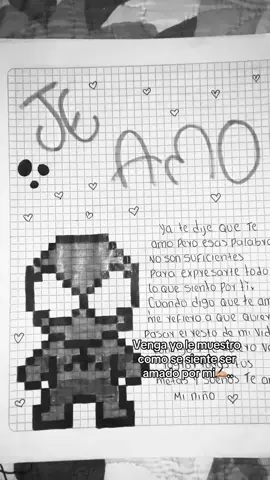 TE
AMO
Ya te dije que Te
amo Pero esas Palabra
No son suficientes
Para expresarte todo
lo que siento Por ti,
Cuando digo que te am
me refiero a que quier
Pasar el resto de mi vid
Venga yo le muestro
como se siente ser
amado por mi
Metas y sueños Te a
Mi niño